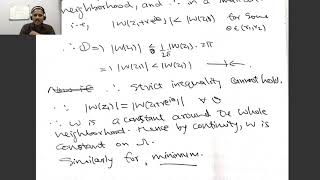 neighborhood, and ∴ in a
i.e, |W(z₁+re^{iθ})| < |W(z₁)| for some
θ∈(r₁,r₂)
∴ ①⇒ |W(z₁)| ≤ 1/2π |W(z₁)|. 2π
⇒ |W(z₁)| < |W(z₁)|
∴ Strict inequality cannot hold.
∴ |W(z₁)| = |W(z₁+re^{iθ})| ∀ θ
∴ W is a constant around the whole
neighborhood. Hence by continuity, W is
constant on Ω.
Similarly for, minimum.